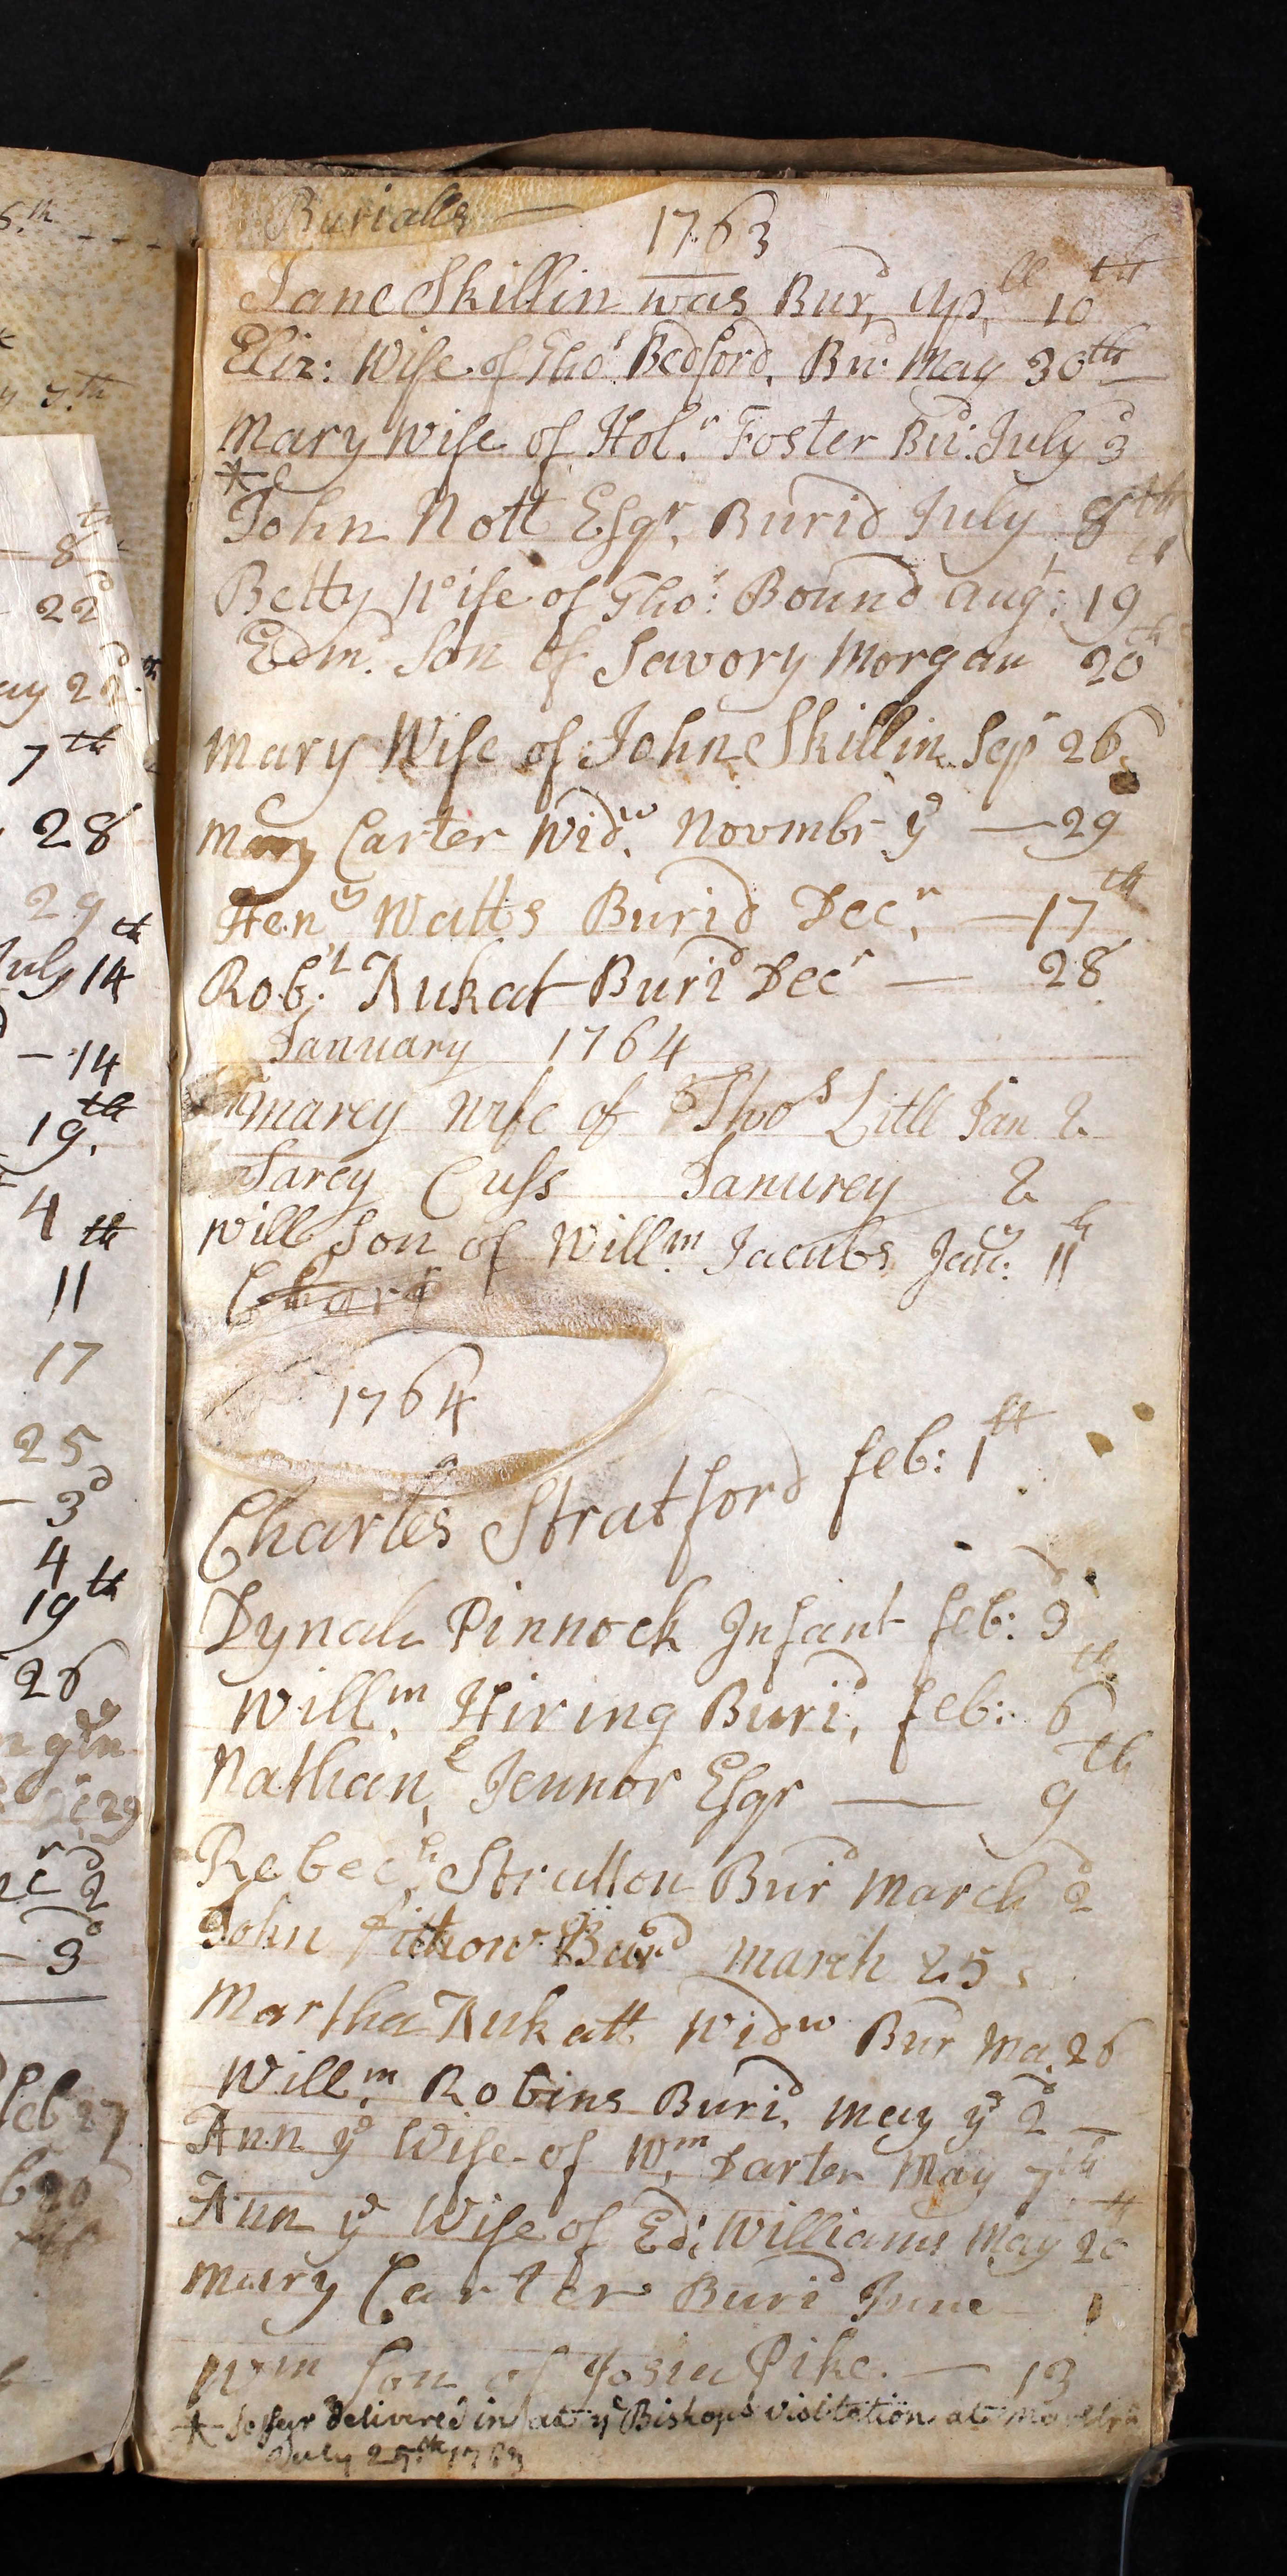 Burialls —
1763
Jane Skillin was Burd Apll 10th
Eliz: Wife of Thos Bedford, Bu: May 30th —
Mary Wife of Holr Foster Bu: July 3d
*
John Nott Esqr, Burid July 8th
Betty Wife of Thos: Bound Augt: 19th
Edmd Son of Savory Morgan 20th
Mary Wife of John Skillin Sepr 26
Mary Carter Widw Novmbr ye — 29
Heny Watts Burid Decr — 17th
Robt Nukat Burid Decr — 28
January 1764
marey wife of Thos Litll Jan 2
Sarey Cuss Janurey 2
Will Son of Willm Jacobs Jany: 11th
Char
1764
Charles Stratford feb: 1st
Dynah Pinnock Infant feb: 3d
Willm Hiring Burid, feb: 6th
Nathanl Jennor Esqr — 9th
Rebech Stratton Burd March 2d
John Burd march 25
Martha Nukatt Widw Bur Ma. 26
Willm Robins Burid, May ye 2d —
Ann ye Wife of Wm Darter May 7th
Ann ye Wife of Ed: Williams May 20th
Mary Carter Burid June 1
Wm Son of Josia Pike. — 13
* So far delivered in at ye Bishops visitation at
July 25th 1763
8th
22d
ay 22d
7th
28
29th
July 14
— 14
19th
4th
11
17
25
— 3d
4
19th
26
29
ecr 2d
— 3d
feb 27